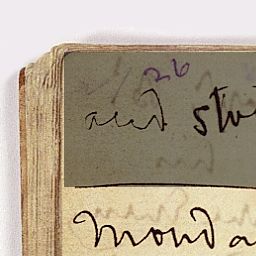 26
and
Monda